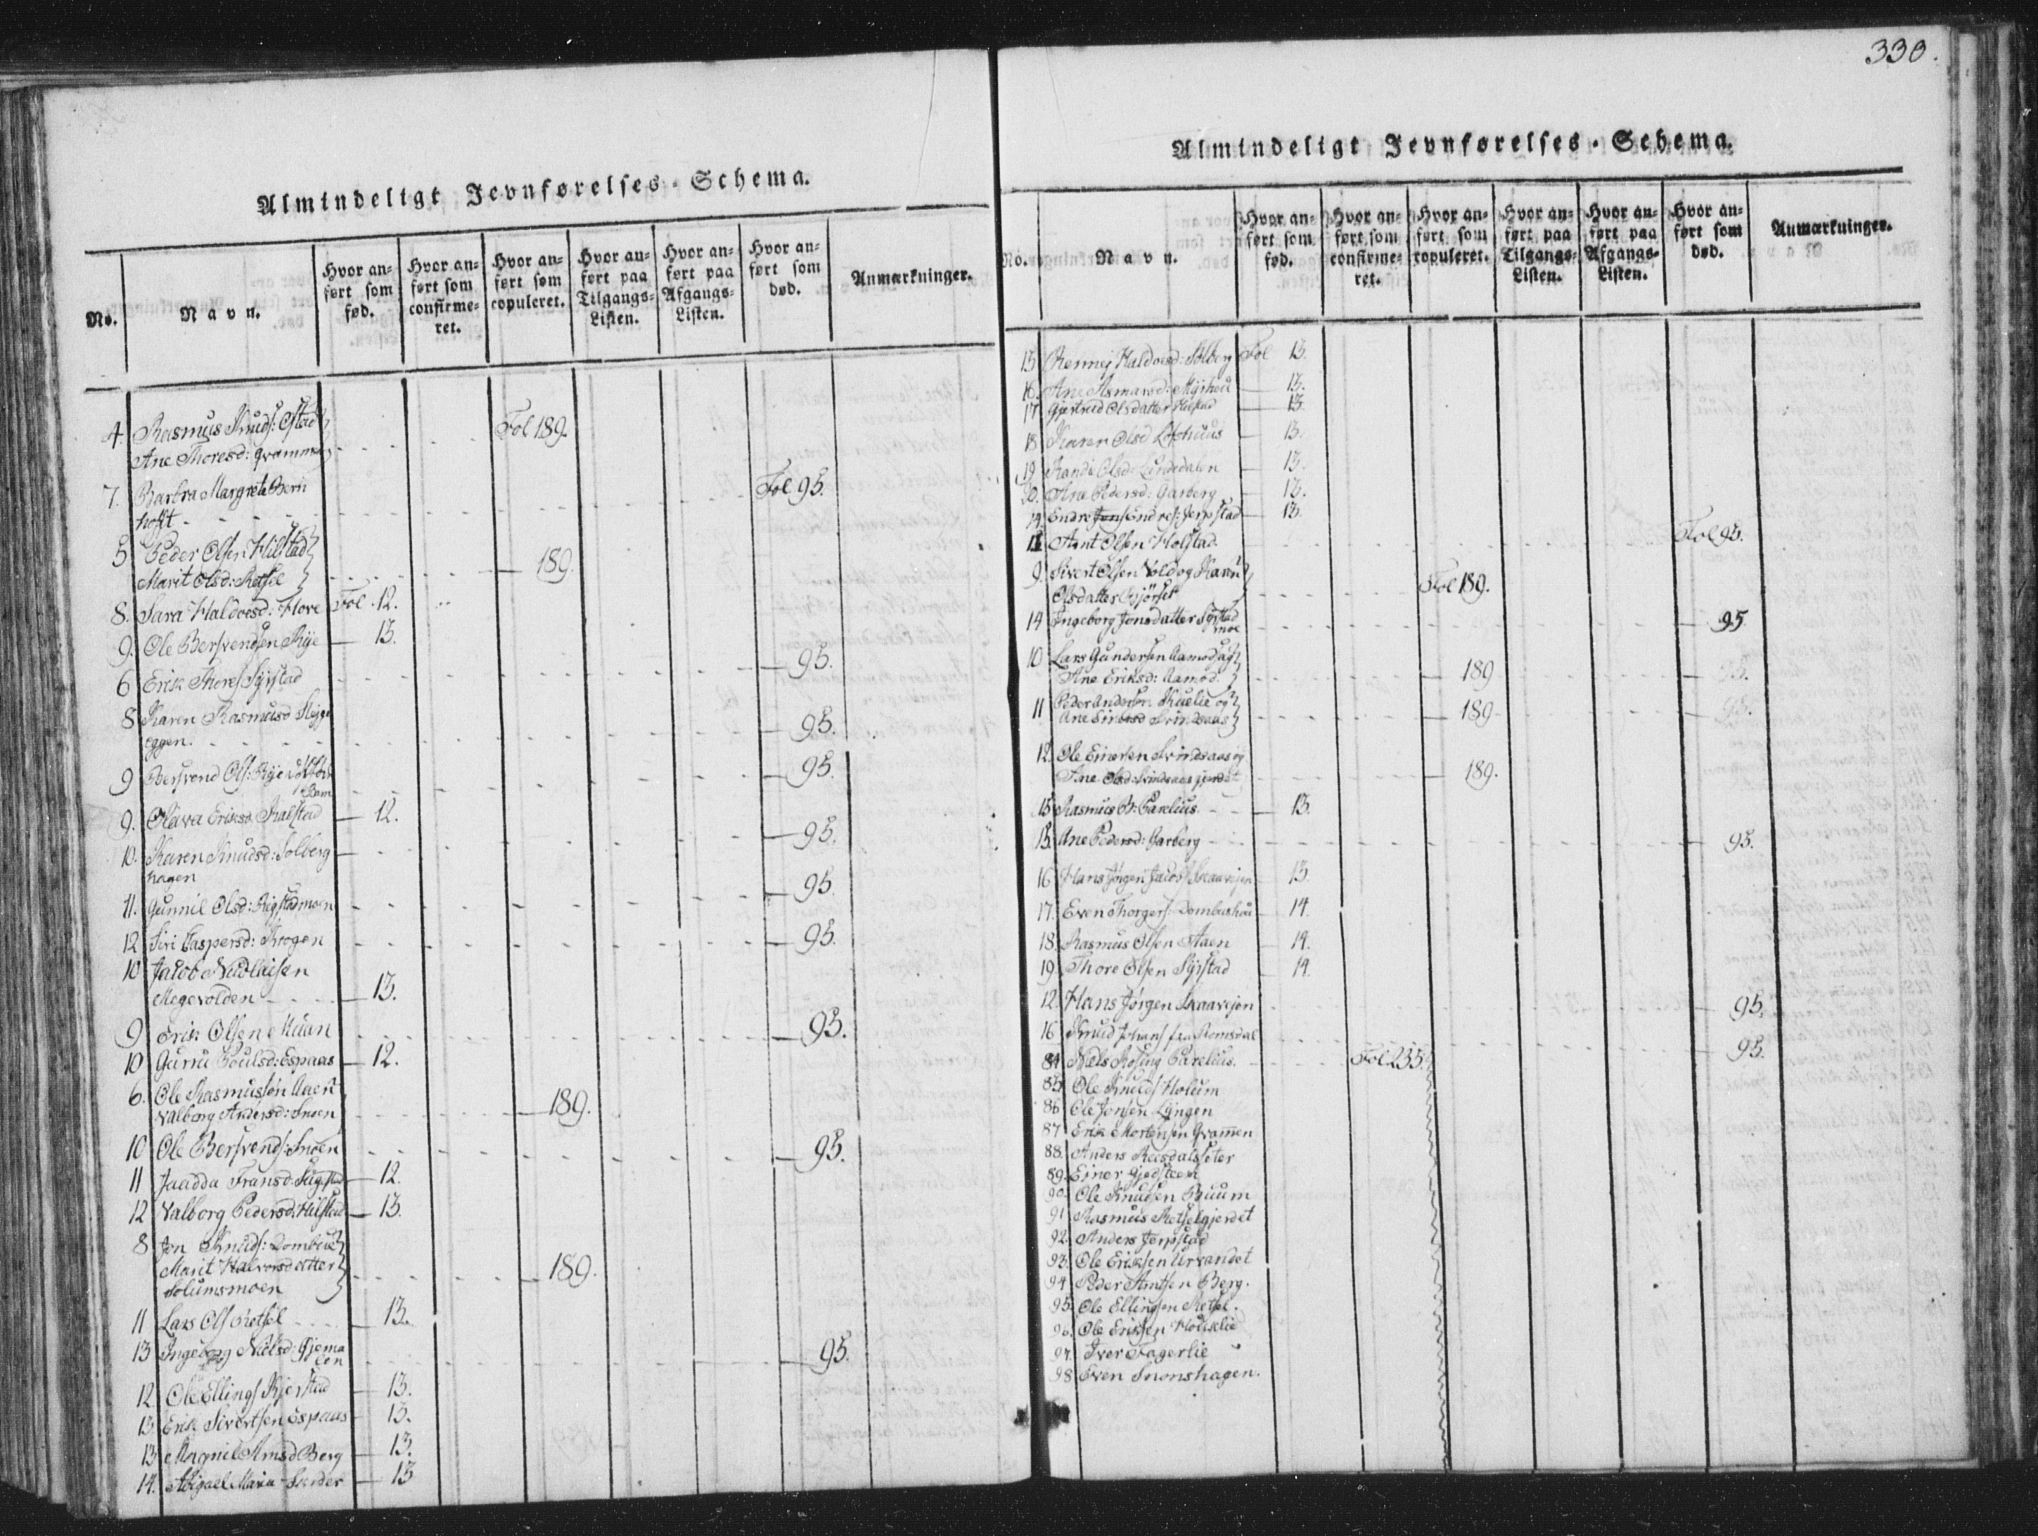 Almindeligt Jevnførelses-Schema.
No.
Navn.
Hvor an-
ført som
fød.
Hvor an-
ført som
confirme-
ret.
Hvor an-
ført som
copuleret.
Hvor an-
ført paa
Tilgangs-
Listen.
Hvor an-
ført paa
Afgangs-
Listen.
Hvor an-
ført som
død.
Anmærkninger.
4. Rasmus Knuds: Stad
Ane Thoresd: Grammen Fol 189.
7. Barbra Margreta Bern
hoft Fol 95.
5 Peder Olsen Hilstad
Marit Olsd: Retsel 189.
8. Sara Haldoesd: Hove Fol 12.
9. Ole Bersvendsen Rye 13.
6 Erik Thores: Syrstad 95.
8 Karen Rasmusd
eggen. 95.
9 Bersvend Ols: Rye 95.
9. Olava Eriksd: Kalstad 12.
10. Karen Knudsd: Solberg
hagen 95.
11. Gunnil Olsd: Rigstadmoen 95.
12 Siri Caspersd: Krogen 95.
10 Jacob Nicolaisen
Megevolden 13.
9 Erik Olsen Muan 95.
10 Guru Poulsd: Espaas 12.
6. Ole Rasmussøn Aaen
Valborg Andersd: Snoen 189.
10 Ole Bersvends: Snoen 95.
11 Jaadda Fransd: 12.
12 Valborg Pedersd: Hilstad 13.
8 Jon Knuds: Dombue
Marit Halvorsdatter
Solumsmoen 189.
11 Lars Ols Retsel 13.
13 Ingeborg Nielsd: Gjema
len 95.
12. Ole Ellings Kjerstad 13.
13. Erik Sivertsen Espaas 13.
13 Magnil Arnsd Berg 13.
14. Abigael Maria 13
330.
Almindeligt Jevnførelses-Schema.
No.
Navn.
Hvor an-
ført som
fød.
Hvor an-
ført som
confirme-
ret.
Hvor an-
ført som
copuleret.
Hvor an-
ført paa
Tilgangs-
Listen.
Hvor an-
ført paa
Afgangs-
Listen.
Hvor an-
ført som
død.
Anmærkninger.
15 Rennej Haldoesd: Solberg Fol 13.
16. Ane Asmarsd: Myrhou 13.
17. Gjertrud Olsdatter Hilstad 13.
18 Karen Olsd Lofthuus 13.
19 Randi Olsd: Lindedalen 13.
Ane Pedersd: Garberg 13.
14. Endre Jons Endres: Jerpstad 13.
Arnt Olsen Holstad. Fol 95.
9. Sivert Olsen Vold og Karen
Olsdatter Bjørset Fol 189.
14 Ingeborg Jonsdatter Syrstad
moe 95
10 Lars Gundersen Aamod og
Ane Eriksd: Aamod 189 95.
11 Peder Andersøn Kuelie og
Ane Einersd Svindsaas 189 95.
12. Ole Einersen Svindsaas og
Ane Olsd: Svindsaas 189.
15 Rasmus B: Parelius 13.
15. Ane Pedersd: Garberg 95.
16 Hans Jørgen Jacobs Skaarejen 13.
17. Even Thorgers: Dombushou 14.
18. Rasmus Olsen Aaen 14.
19. Thore Olsen Syrstad 14.
12. Hans Jørgen Skaarejen 95.
16 Knud Johans fra Romsdal 95.
84. Niels Rosing Parelius. Fol 235.
85 Ole Knuds Holum
86 Ole Jonsen Lyngen
87 Erik Mortensen Grammen
88. Anders Reesdalsseter
89. Einer Gjedsteen
90. Ole Knudsen Buum
91 Rasmus Retselgjerdet
92. Anders Jerpstad
93. Ole Eriksen Urvandet
94 Peder Arntsen Berg.
95. Ole Ellingsen Retsel.
96. Ole Eriksen Houklie
97. Iver Fagerlie
98 Even Snoenshagen.